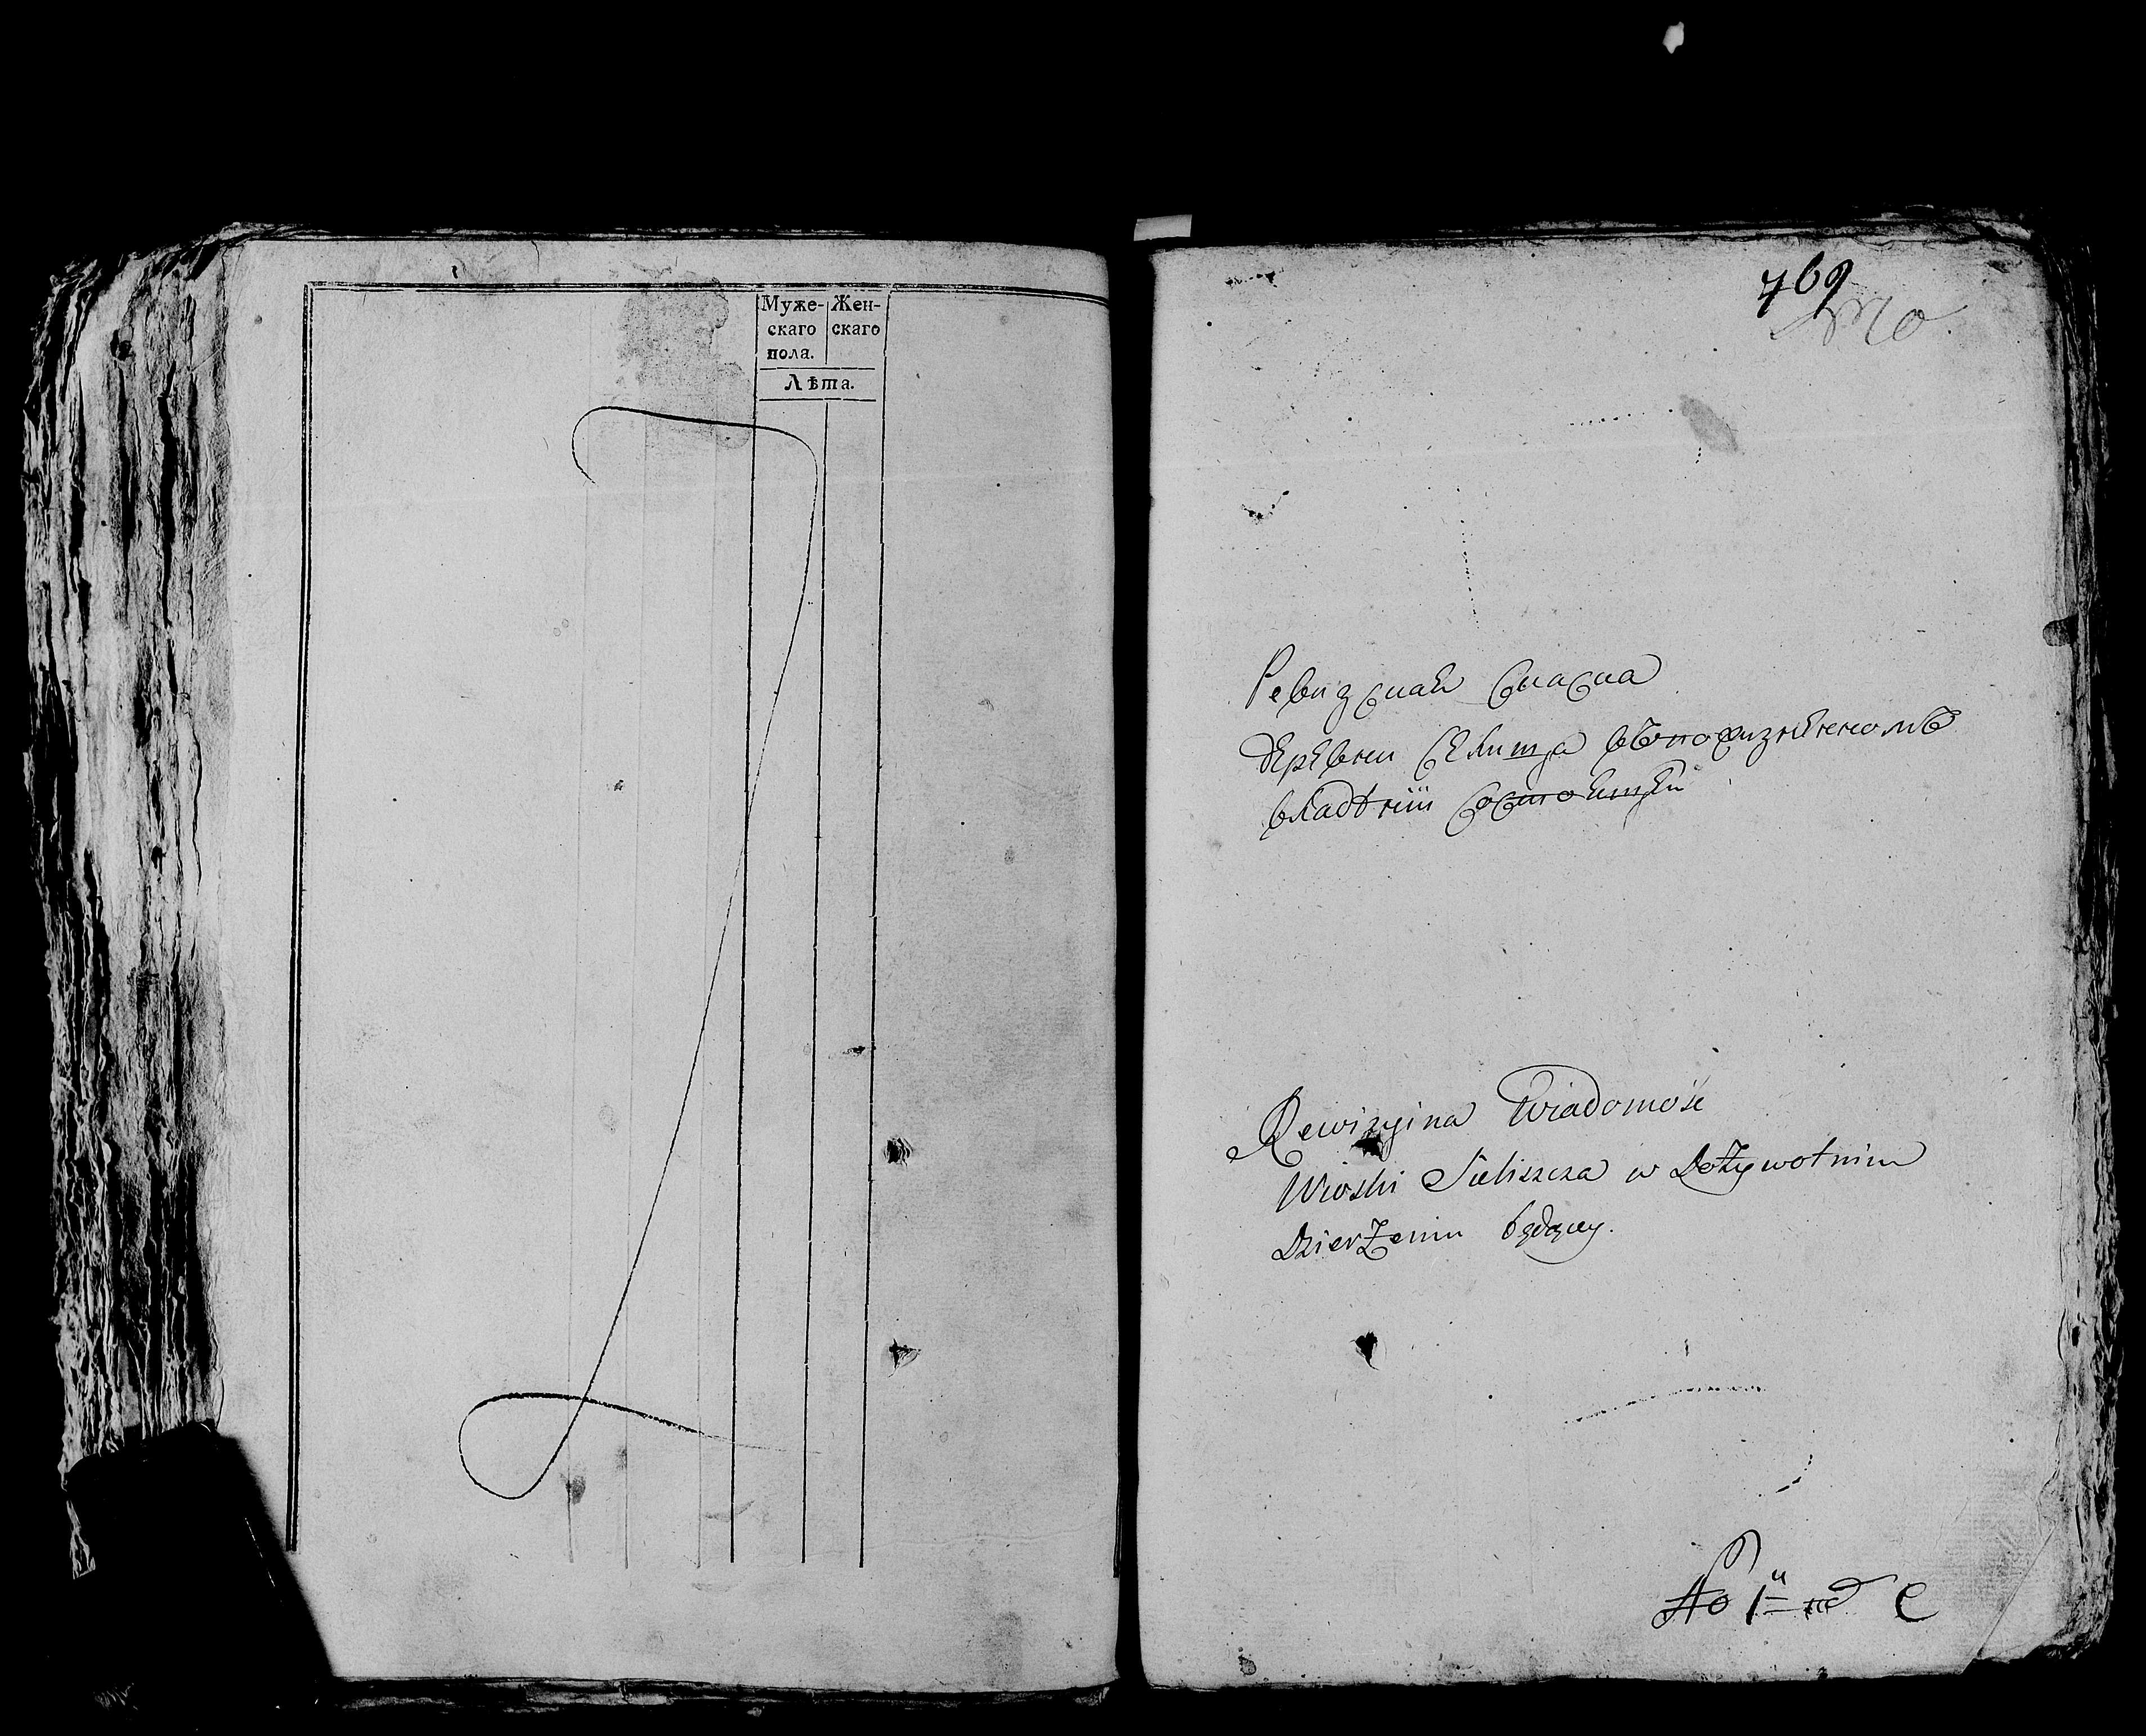 Муже- Жен-
скаго скаго
пола.
Лѣта.
769
Ревизская Сказка
деревни Селища въ пожизненомъ
владѣнiи состоящей
Rewizyina Wiadomość
Wioski Sieliszcza w Dożywotnim
Dzierżeniu będącey.